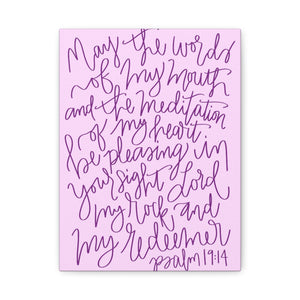 May the words
of my mouth
and the meditation
of my heart
be pleasing in
your sight Lord
my rock and
my redeemer
psalm 19:14